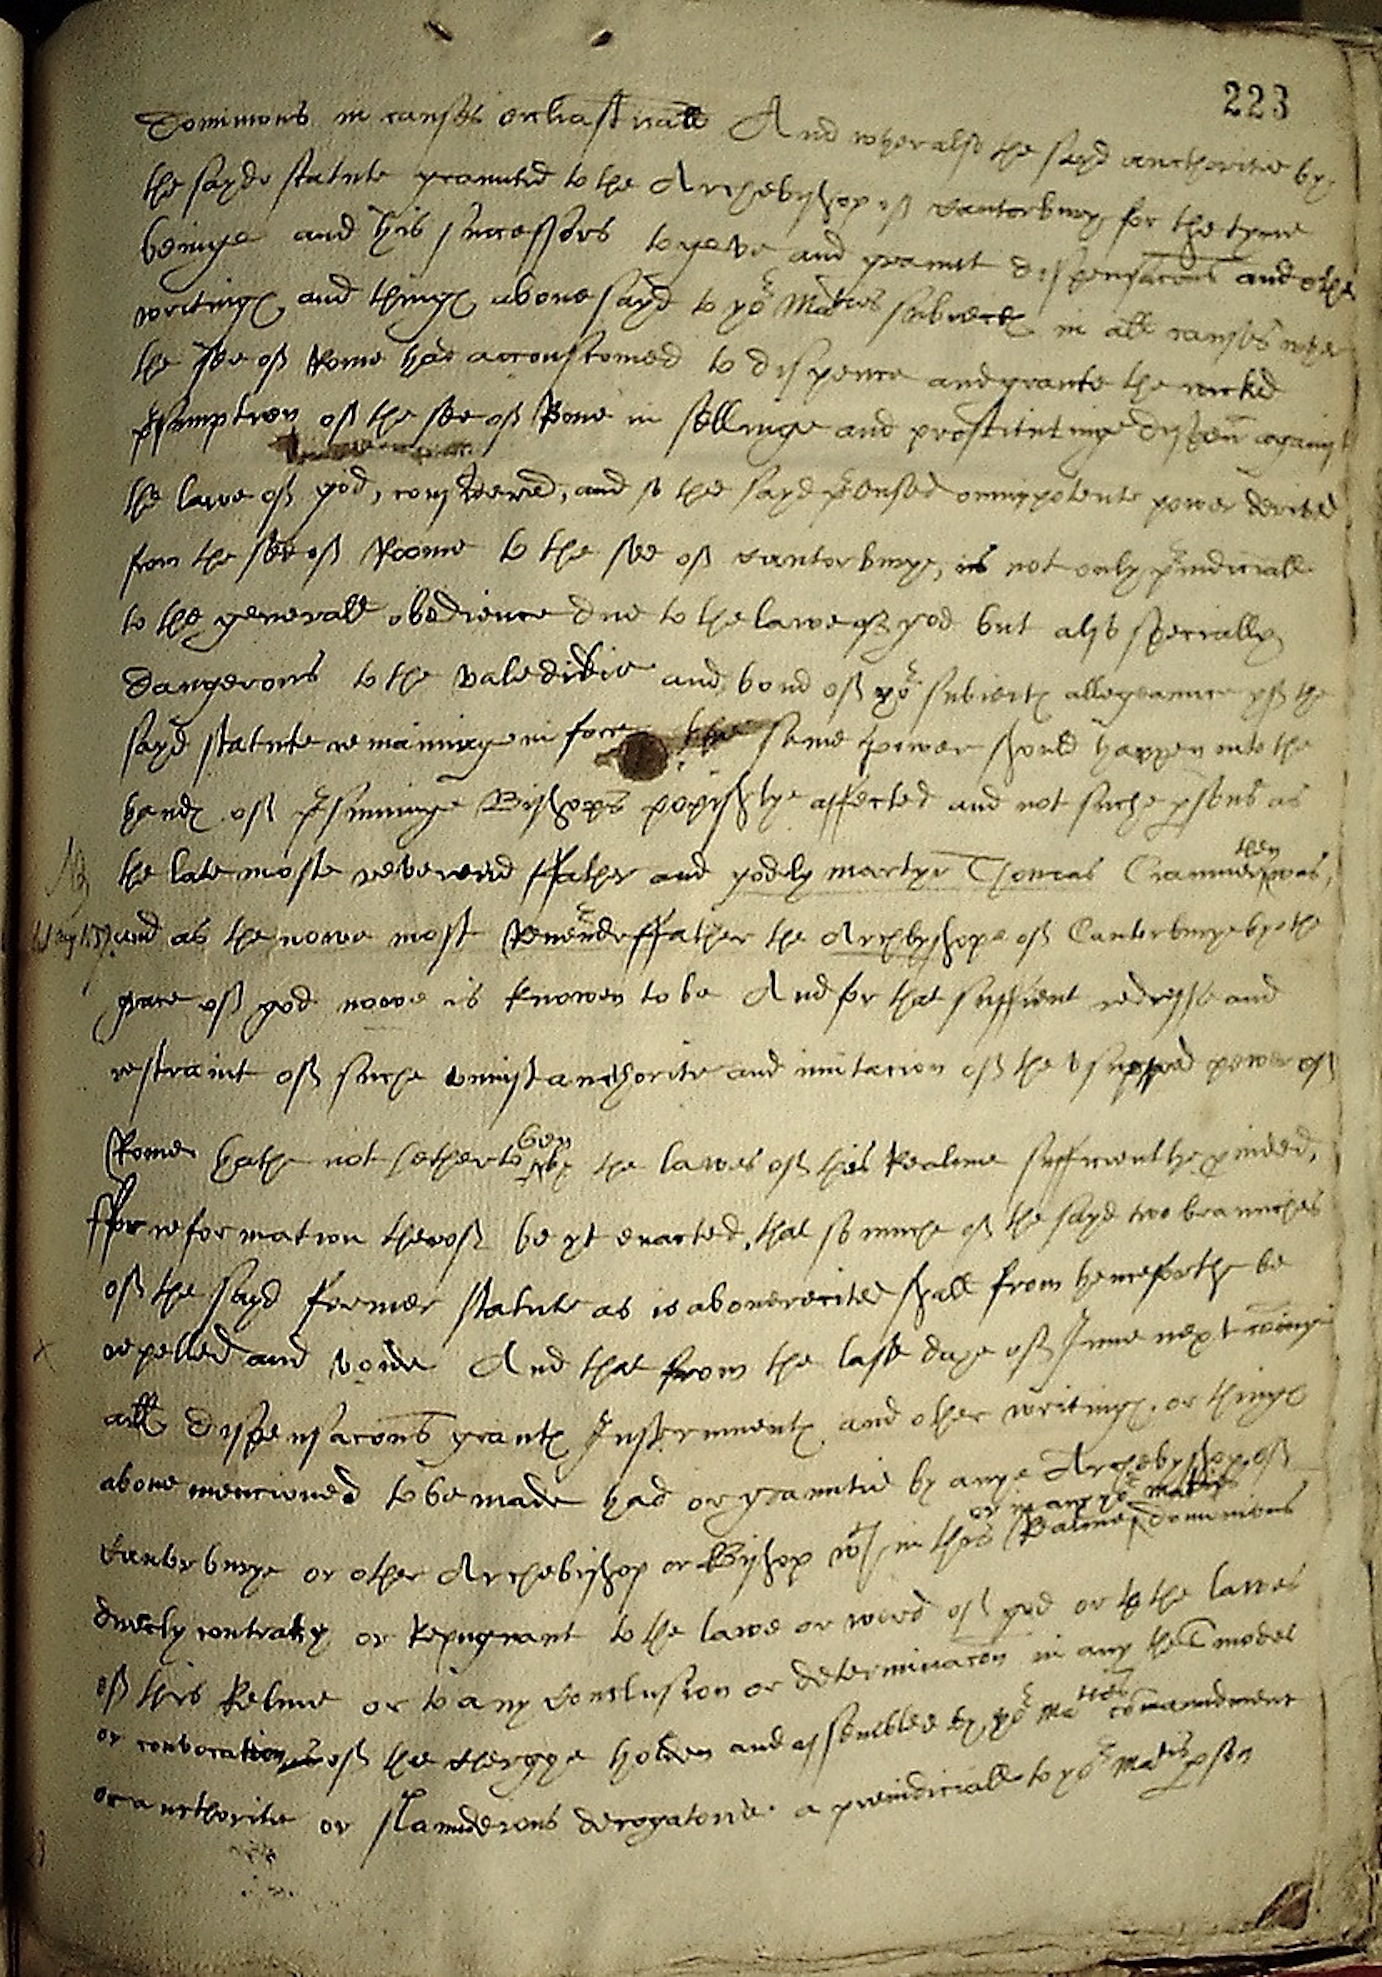 223
Dominions in causes ecclīasticall And wher also the sayd aucthoritie by
the sayde statute graunted to the Archebyshop of Canterbury for the tyme
beinge and his successors to geve and graunt dispensacōns and other
writing℮ and thing℮ above sayd to yor Maties subiect℮ in all causes wher
the see of Rome had accoustomed to dispence and graunte the wicked
p̄sumption of the see of Rome in sellinge and prostitutinge dispen̄ against
the lawe of god, considered, and so the sayd p̄tensed omnypotente power derived
from the see of Roome to the see of Canterburye, is not only p̄iudiciall
to the generall obedience due to the lawe of god but also specially
dangerous to the and bond of yor subiect℮ allegeaunce yf the
sayd statute remaininge in force the same power should happen into the
hand℮ of p̄suminge Bishops popishlye affected and not suche p̱sons as
the late moste reverend ffather and godely martyr Thomas Cranmer then was,
and as the nowe most Reuerende ffather the Archbyshope of Canterburye by the
grace of god nowe is knowen to be And for that suffient redresse and
restraint of suche uniust aucthoritie and imitacion of the usurped power of
Rome hathe not hetherto ben by the lawes of this Realme sufficientlye p̱vided,
ffor reformation therof be yt enacted, that so muche of the sayd two braunches
of the sayd former statute as is above recited shall from henceforthe be
repelled and voide And that from the last daye of June next cōminge
all dispensacōns graunt℮ Instrument℮ and other writing℮ or thing℮
above mencioned to be made had or graunted by anye Archebyshop of
Canterburye or other Archebishop or Bishop wth in this Realme or in any yor Maties dominions
directly contrary or Repugnant to the lawe or word of god or to the lawes
of this Relme or to any conclusion or determinacōn in any the
or convocation of the clergye holden and assembled by yor Maties cōmaundment
or aucthoritie or slaunderous derogatorie a preiudiciall to yor Maties p̱son